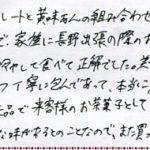 レートと黄味あんの組み合わせ
で、家種に長野出張の際のお
冷やして食べて正解でした。美
つ丁寧に包んであって、本当に
品で来客様のお茶菓子として
な味があるとのことなので、また買っ